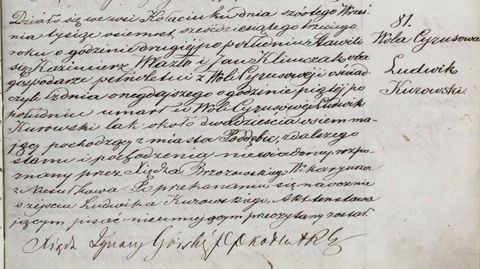 Działo się we wsi Kołaciniku dnia szóstego Wrze-
śnia tysiąc ośmset sześćdziesiątego trzeciego
roku o godzinie drugiéj po południu. Stawili
się Kazimierz Wasto i Jan Klimczak oba
gospodarze pełnoletni z Woli Cyrusowéj i oświad-
czyli iż dnia onegdajszego o godzinie piątéj po
południu umarł w Woli Cyrusowéj Ludwik
Kurowski lat około dwadzieścia ośm ma-
jący pochodzący z miasta Poddębic, z dalszego
stanu i pochodzenia niewiadomy, rozpo-
znany przez Księdza Brzozowskiego Wikaryusza
z Niesułkowa. Po przekonaniu się naocznie
o zejściu Ludwika Kurowskiego, Akt ten stawa-
jącym pisać nieumiejącym przeczytany został.
Xiądz Ignacy Górski
81.
Wola Cyrusowa
Ludwik
Kurowski.